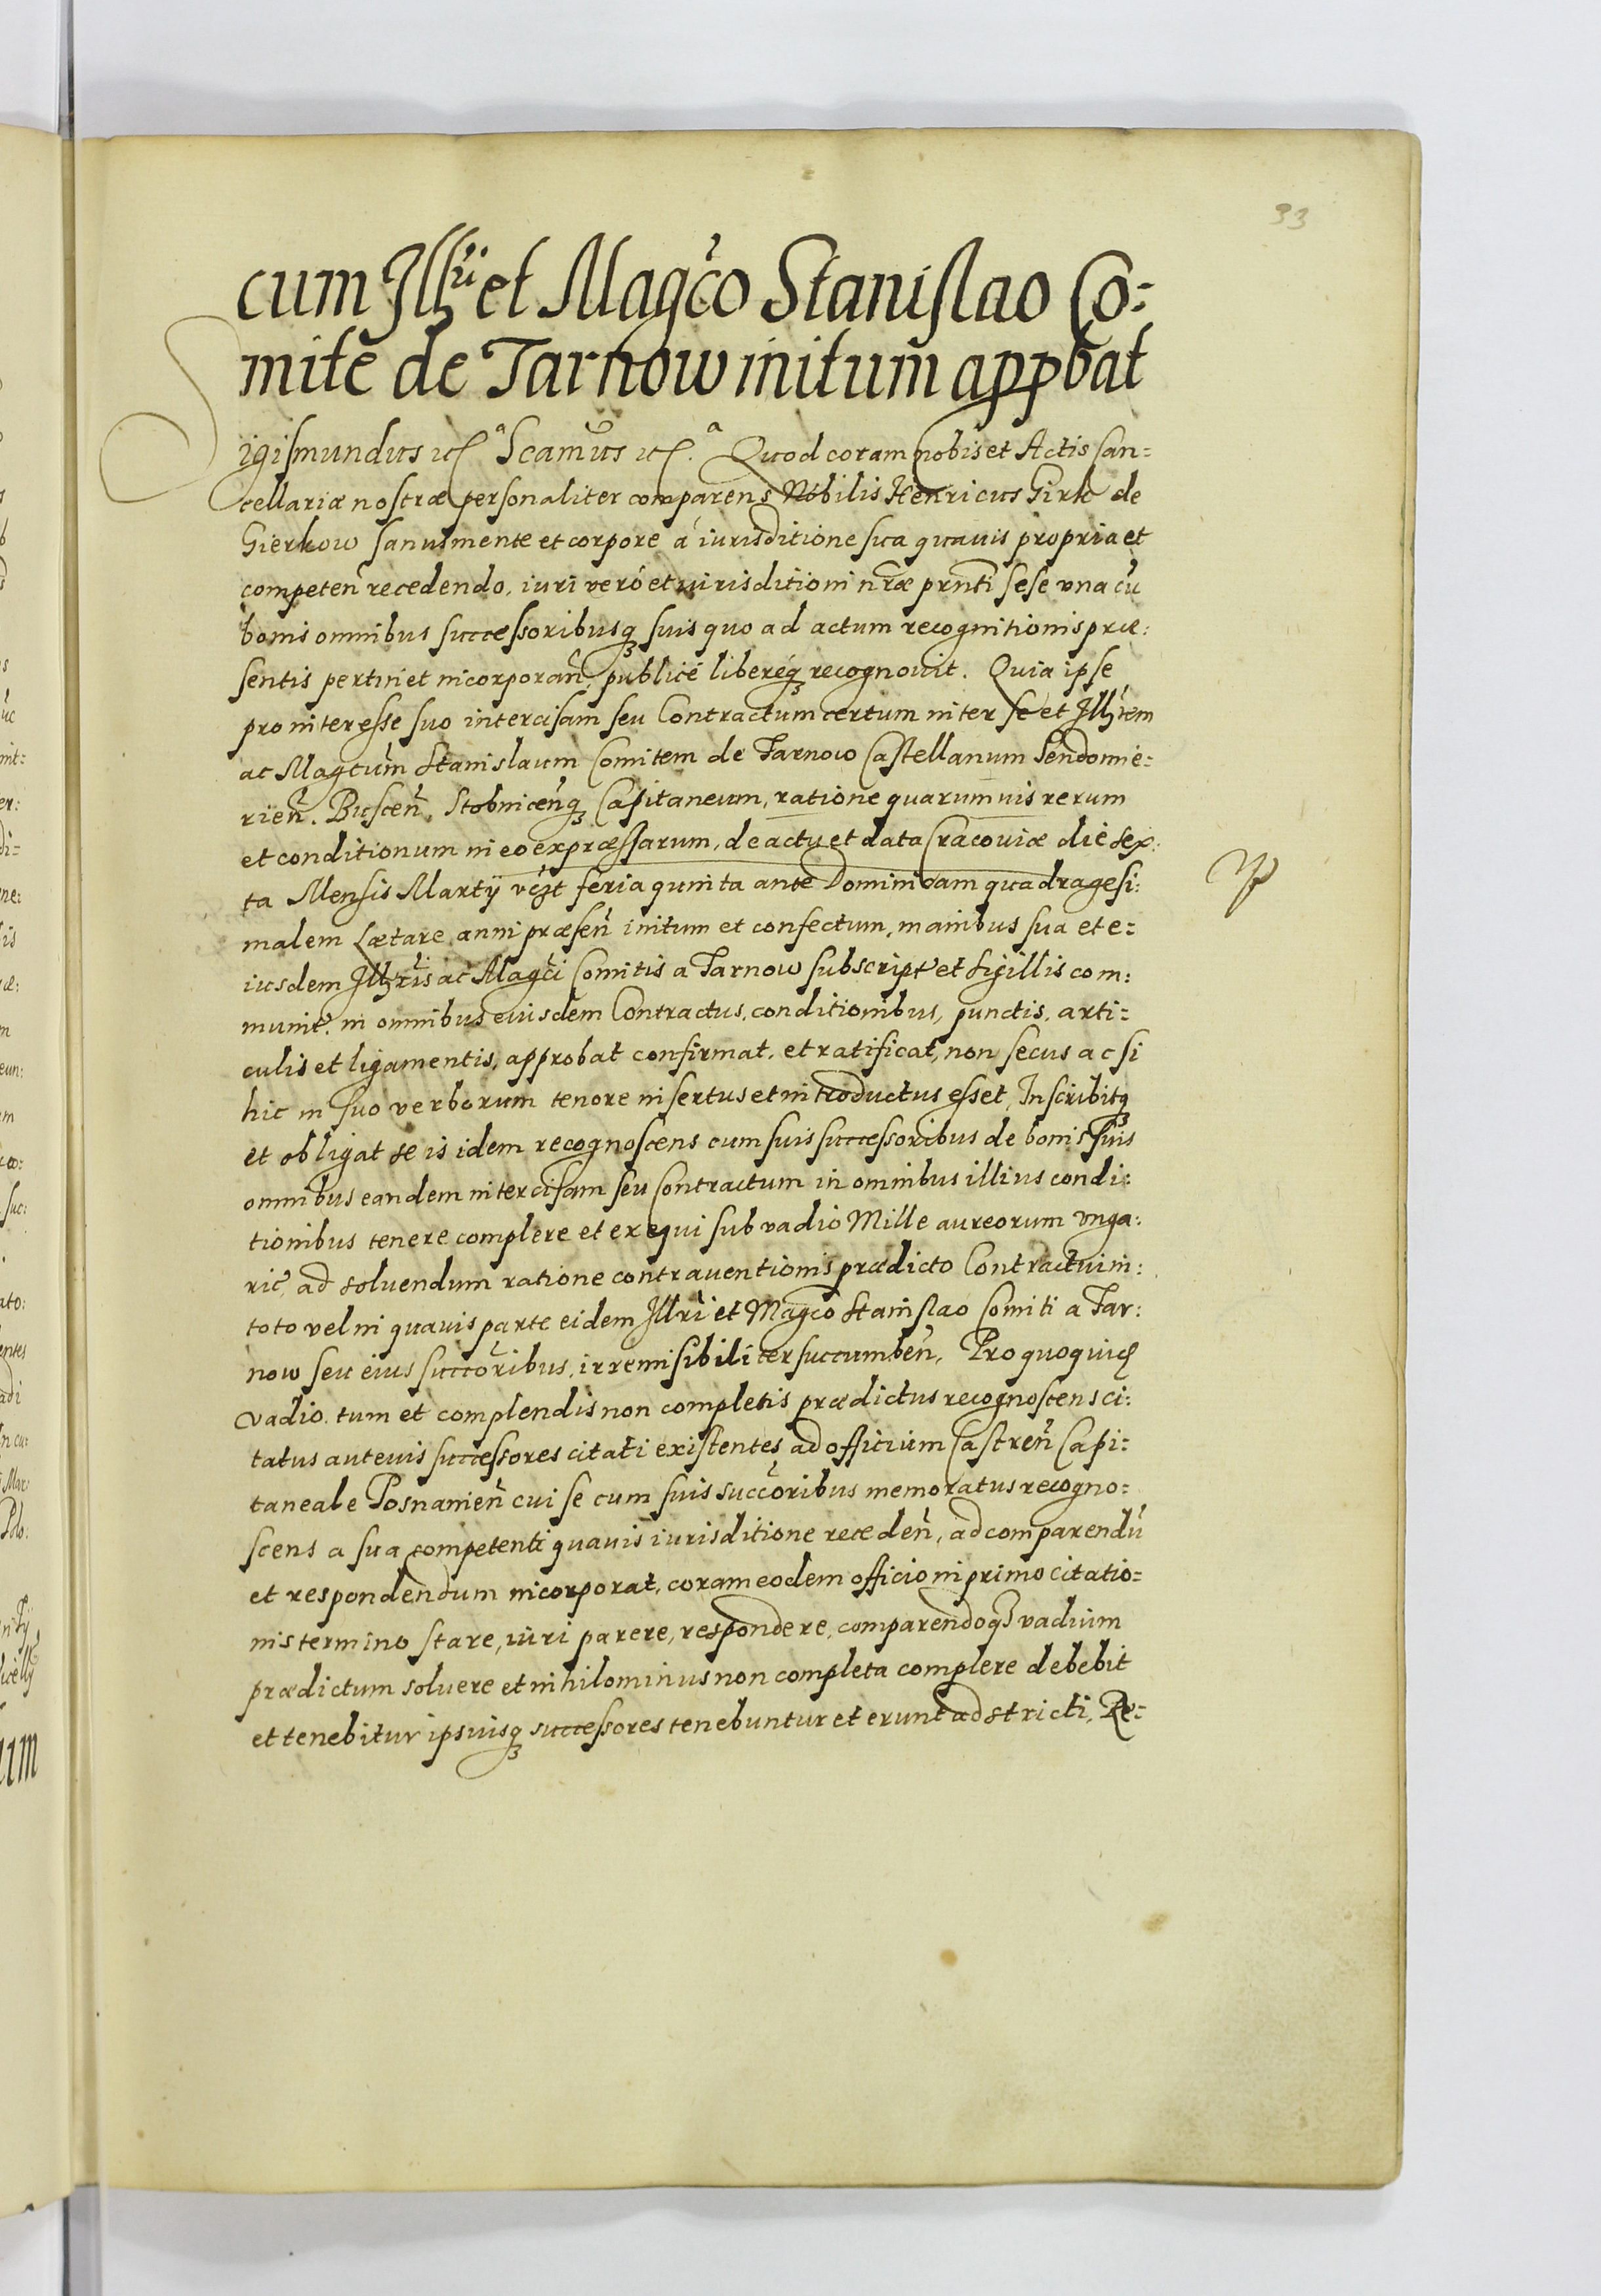 33
cum Illri et Magco Stanislao Co-
mite de Tarnow initum appbat
Sigismundus etc Scamus etc. Quod coram nobis et Actis Can-
cellariæ nostræ personaliter comparens Nobilis Henricus Girk de
Gierkow sanus mente et corpore á iurisditione sua quauis propria et
competen recedendo, iuri veró et iurisditioni nræ prnti sese vna cu
bonis omnibus successoribusq suis quo ad actum recognitionis præ:
sentis pertinet incorporan, publicé liberéq recognouit. Quia ipse
pro interesse suo intercisam seu Contractum certum inter se et Illrem
ac Magcum Stanislaum Comitem de Tarnow Castellanum Sendomie:
rien. Buscen. Stobnicenq Capitaneum, ratione quarumuis rerum
et conditionum in eo expræssarum, de actu et data Cracouiæ die sex:
ta Mensis Martij vdzt feria quinta ante Dominicam quadragesi:
malem Lætare anni præsen initum et confectum, manibus sua et e-
iusdem Illris ac Magci Comitis a Tarnow subscript et sigillis com:
munit. in omnibus eiusdem Contractus, conditionibus, punctis, arti-
culis et ligamentis, approbat confirmat, et ratificat, non secus ac si
hic in suo verborum tenore insertus et introductus esset, Inscribitq
et obligat se is idem recognoscens cum suis successoribus de bonis suis
omnibus eandem intercisam seu Contractum in omnibus illius condi:
tionibus tenere complere et exequi sub vadio Mille aureorum vnga:
ric, ad soluendum ratione contrauentionis prædicto Contractui in:
toto vel in quauis parte eidem Illri et Magco Stanislao Comiti a Tar:
now seu eius succoribus, irremisibiliter succumben, Pro quoquid
vadio, tum et complendis non completis prædictus recognoscens ci:
tatus autem is successores citati existentes, ad officium Castren Capi:
taneale Posnanien cui se cum suis succoribus memoratus recogno-
scens a sua competenti quauis iurisditione receden, ad comparendu
et respondendum incorporat, coram eodem officio in primo citatio-
nis termino stare, iuri parere, respondere, comparendoq vadium
prædictum soluere et nihilominus non completa complere debebit
et tenebitur ipsiusq successores tenebuntur et erunt adstricti, Re-